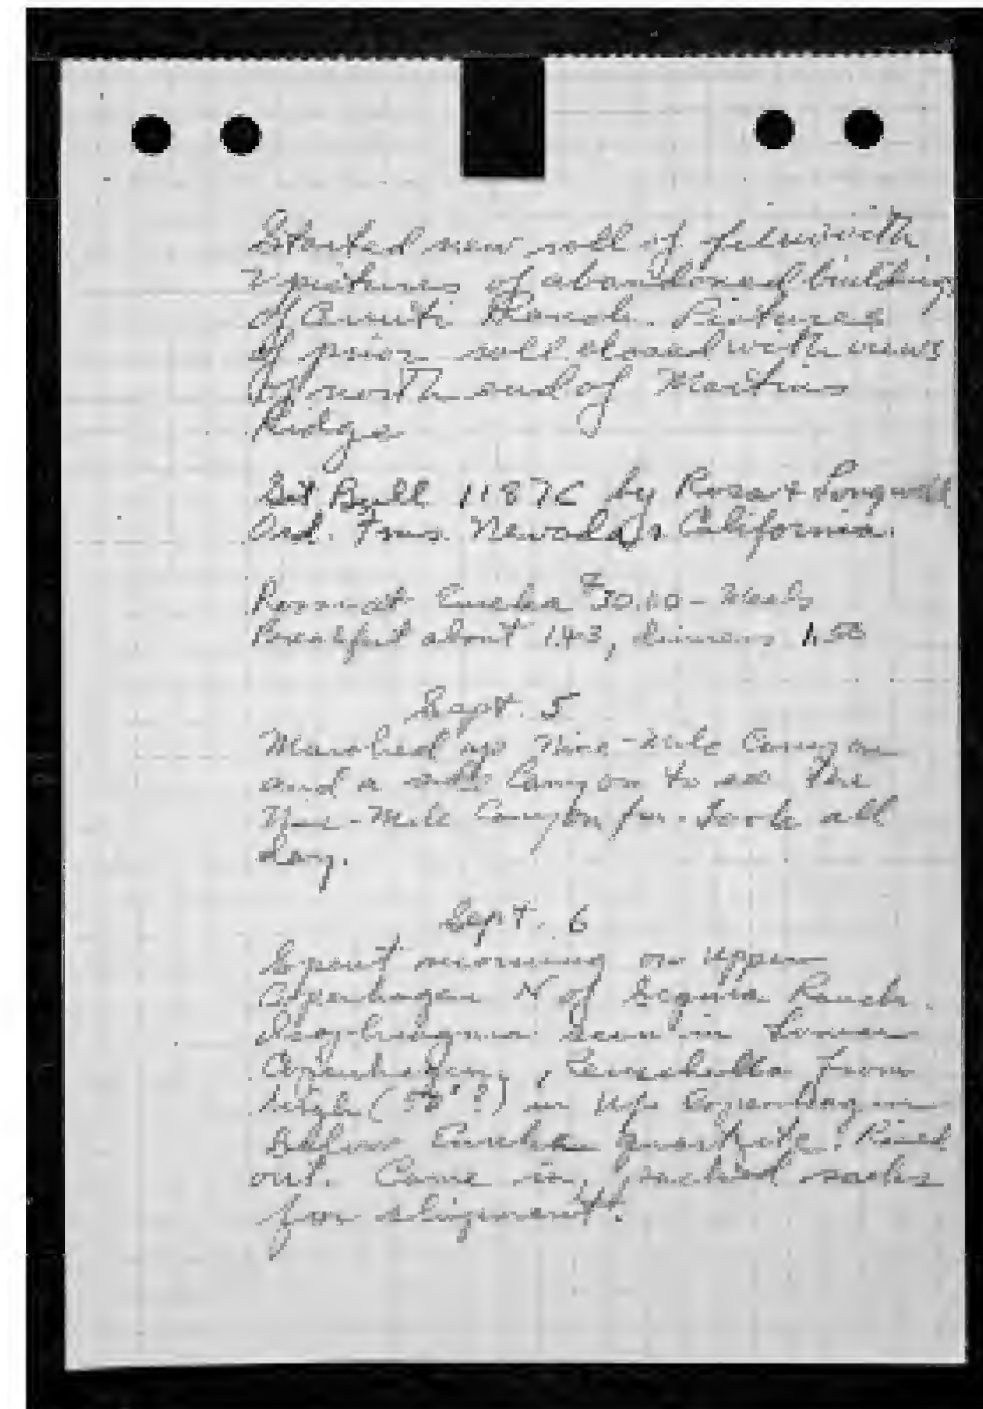 Started new roll of film with
2 pictures of abandoned building
of Ranch. Pictures
of prior roll closed with views
of north end of Martins
Ridge
Get Bull 1187C by Ross + Longwell
Ord. Fms. Nevada & California.
Room at Eureka $30.00 - Meals
Breakfast about 1.43, dinners 1.50
Sept. 5
Marched up Nine-Mile Canyon
and a side Canyon to see the
Nine-Mile Canyon fm. Took all
day.
Sept. 6
Spent morning on upper
Copenhagen N of Segura Ranch.
seen in Lower
Copenhagen, from
high (50'?) in up Copenhagen
below Eureka quartzite. Rained
out. Came in, packed rocks
for shipment.